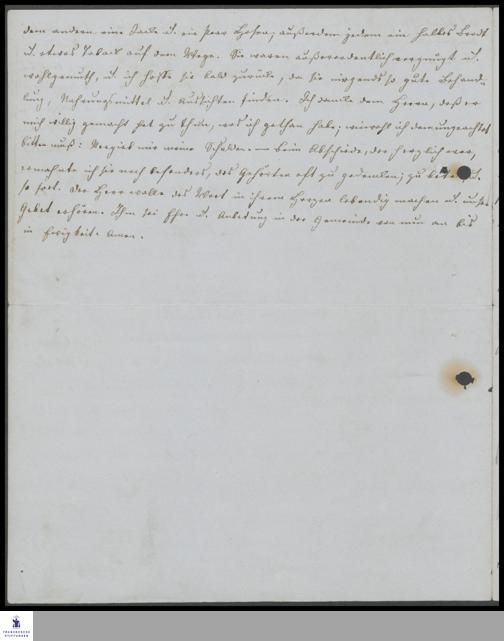 dem andern eine Jacke u. ein paar Hosen; außerdem jedem ein halbes Brodt
u. etwas Taback auf dem Wege. Sie waren außerordentlich vergnügt u.
wohlgemuth, u. ich hoffe sie bald zurück, da sie nirgends so gute Behand-
lung, Nahrungsmittel u. Aussichten finden. Ich danke dem Herrn, daß er
mich willig gemacht hat zu thun, was ich gethan habe; wiewohl ich demungeachtet
bitten muß: Vergieb mir meine Schulden. — Beim Abschiede, der herzlich war,
ermahnte ich sie noch besonders, des Gehörten oft zu gedenken; zu beten u.
so fort. Der Herr wolle das Wort in ihrem Herzen lebendig machen u. unser
Gebet erhören. Ihm sei Ehre u. Anbetung in der Gemeinde von nun an bis
in Ewigkeit. Amen.
FRANCKESCHE
STIFTUNGEN